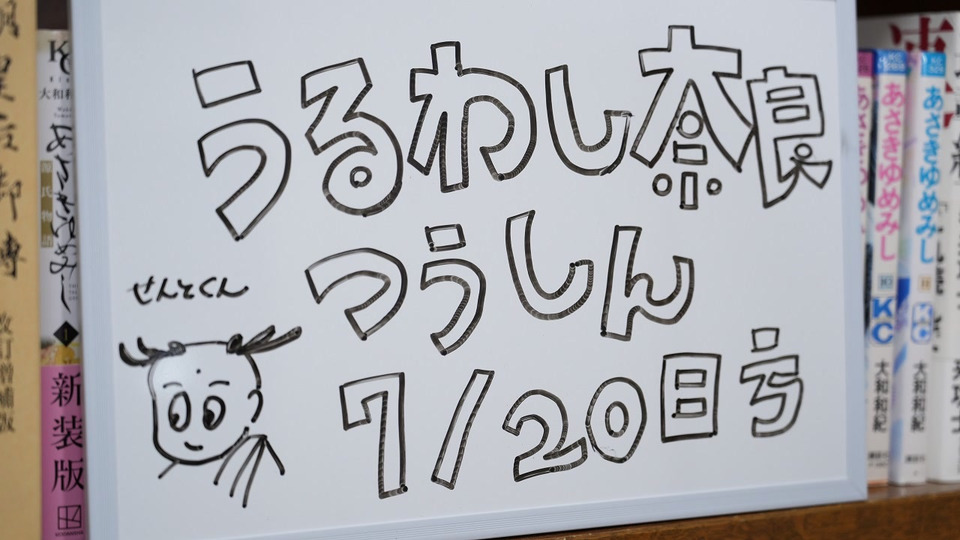 うるわし奈良
つうしん
せんとくん
7/20日号
大和和紀
あさきゆめみし
源氏物語
1
新装版
改訂増補版
あさきゆめみし
10
KC
大和和紀
あさきゆめみし
11
KC
大和和紀